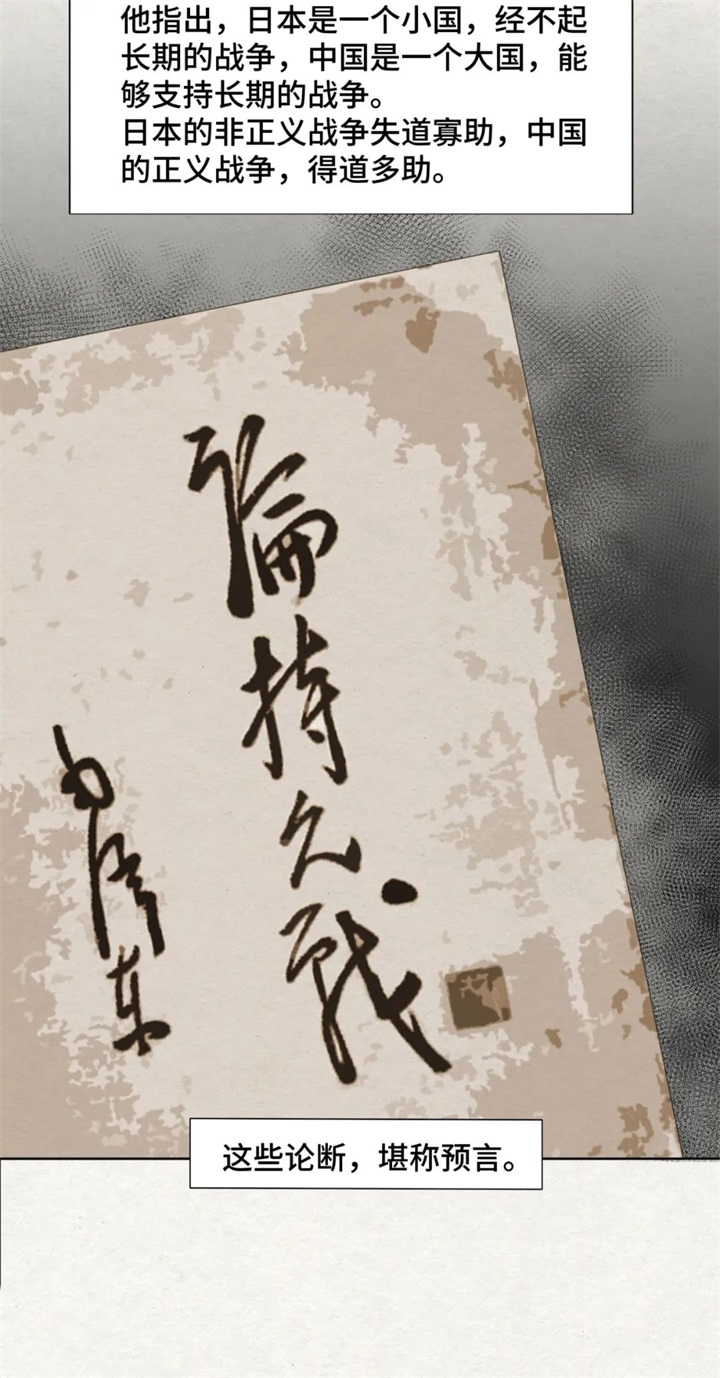 他指出，日本是一个小国，经不起
长期的战争，中国是一个大国，能
够支持长期的战争。
日本的非正义战争失道寡助，中国
的正义战争，得道多助。
論持久戰
毛澤东
这些论断，堪称预言。